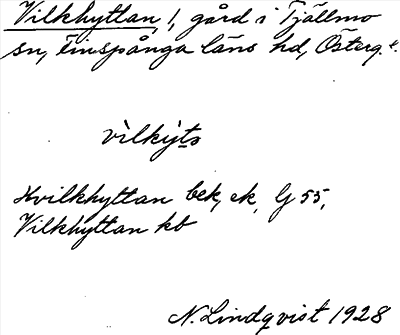 Vilkhyttan, /, gård i Tjällmo
sn, Finspånga läns hd, Österg.
vìlkỳts
Hvilkhyttan bek, ek, G 55,
Vilkhyttan kb
N. Lindqvist 1928